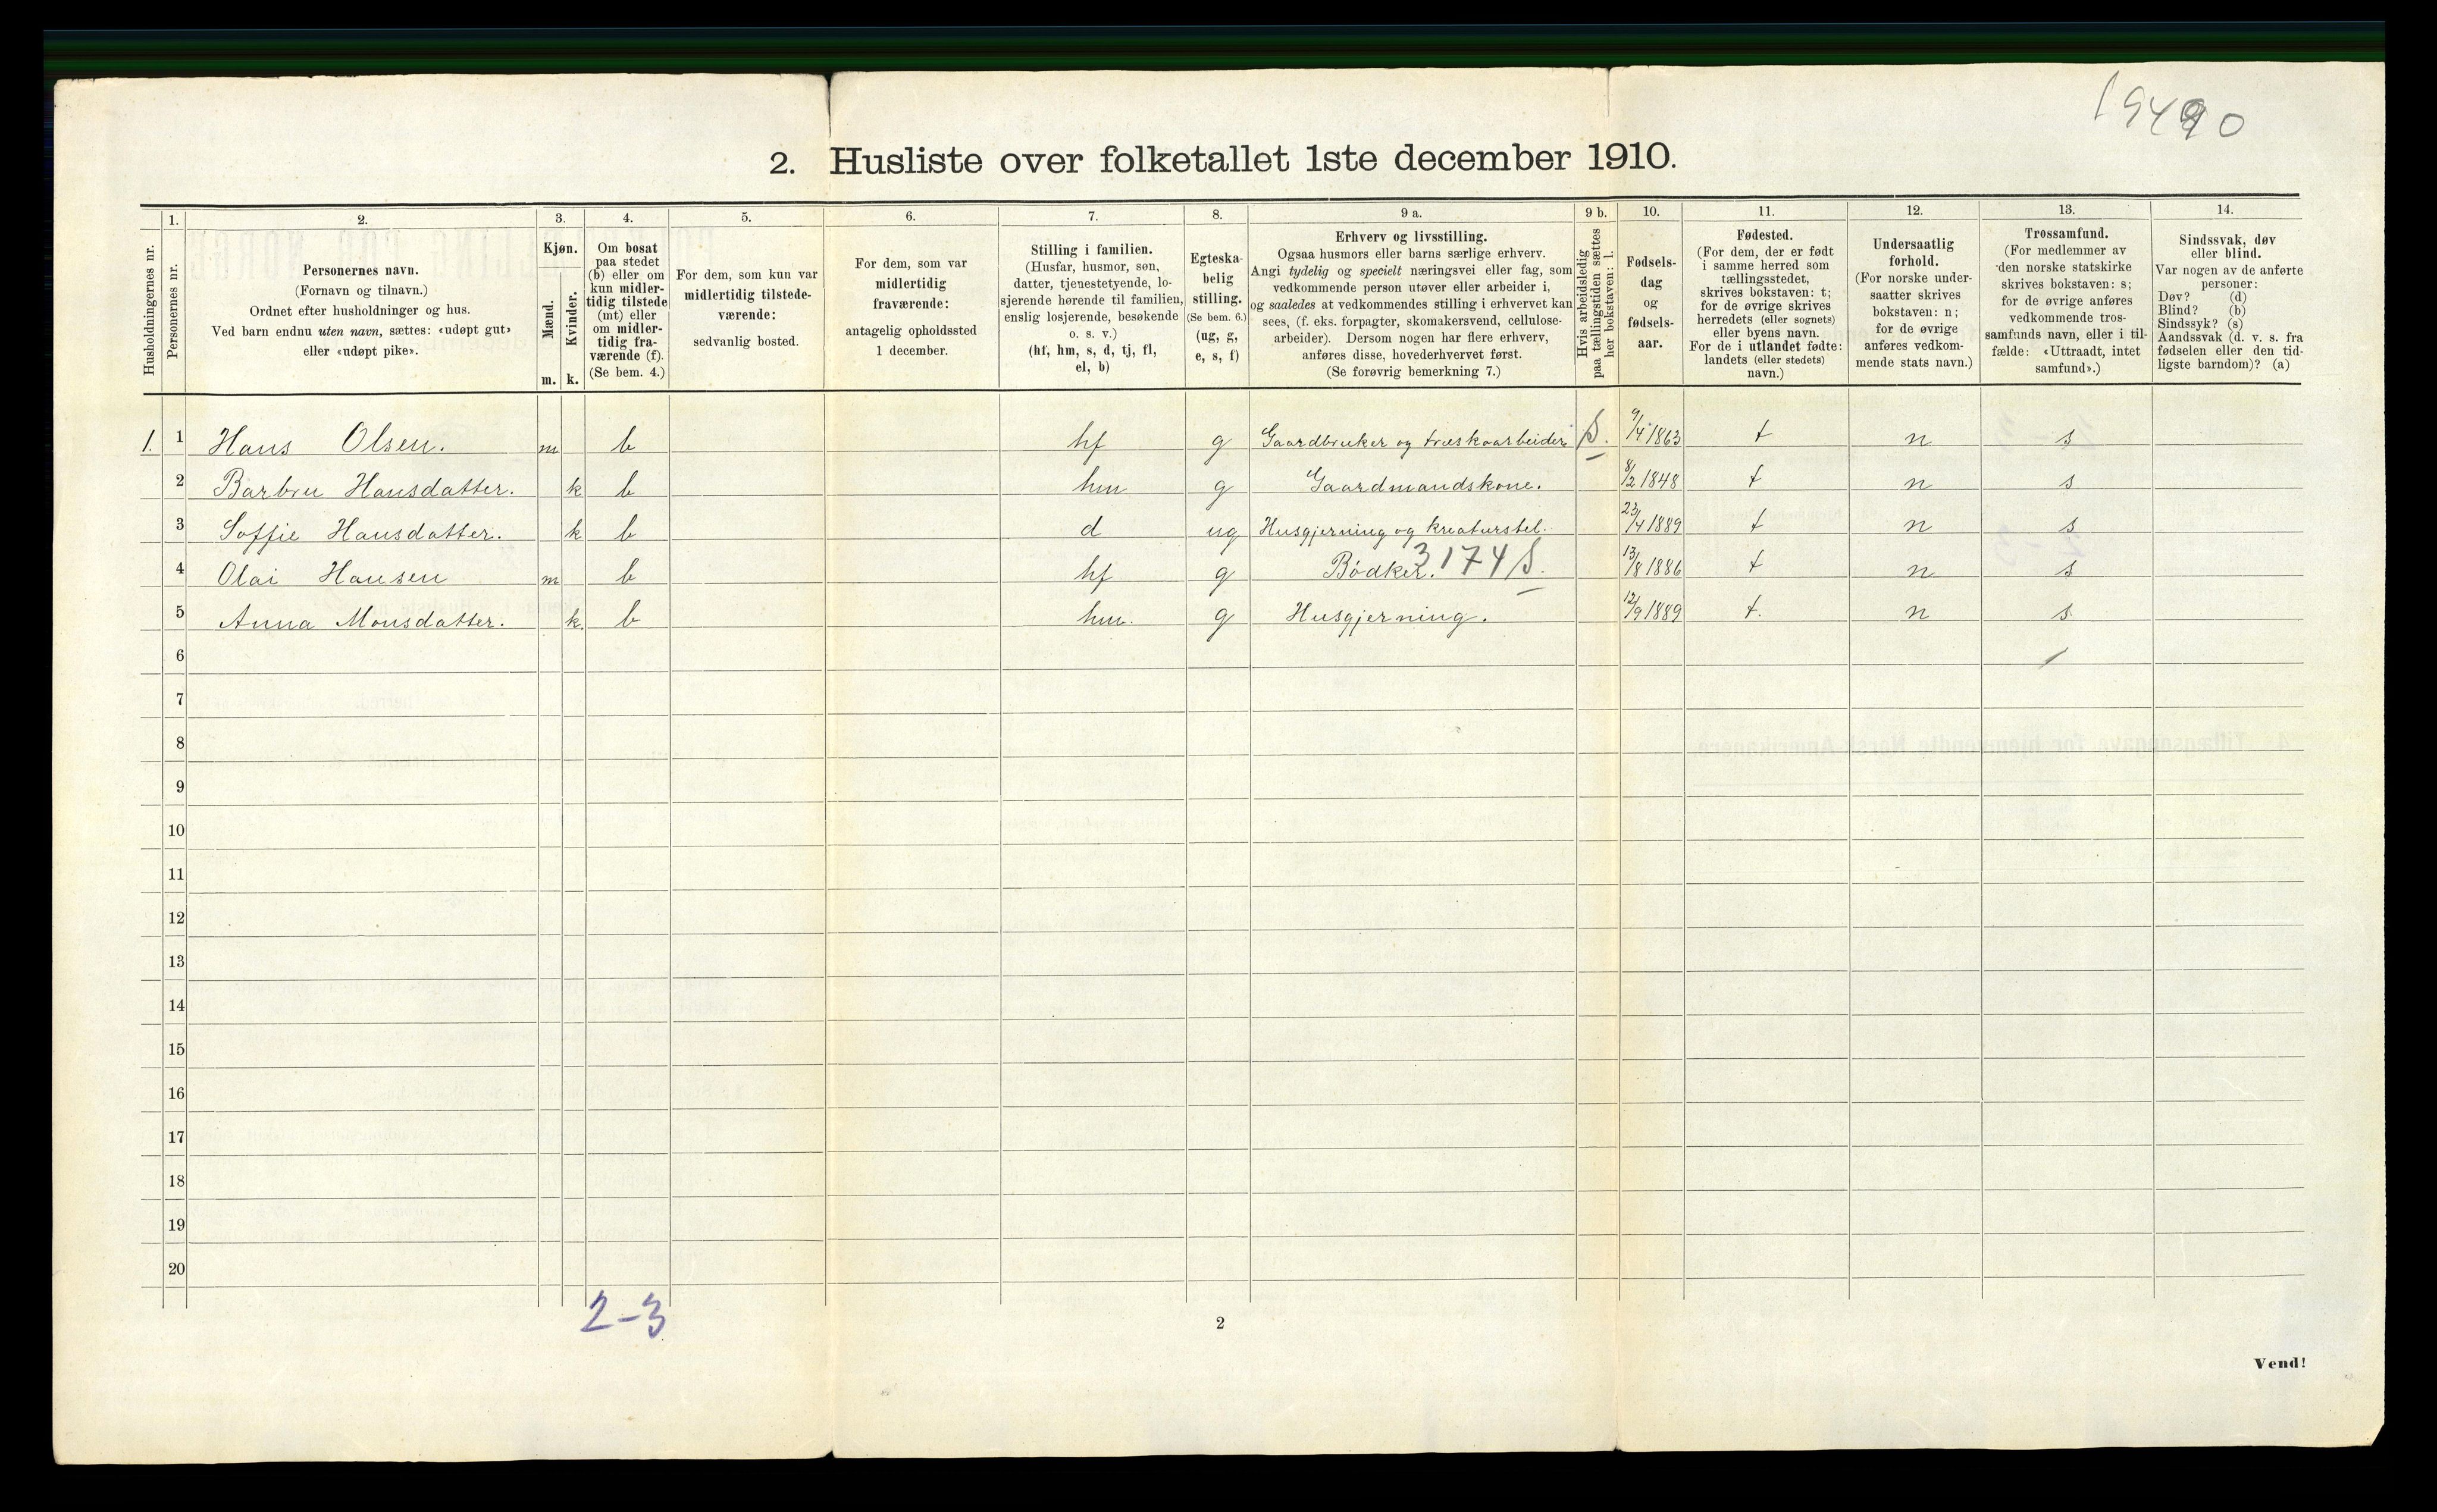 19490
2. Husliste over folketallet 1ste december 1910.
Husholdningernes nr.
1.
Personernes nr.
2.
Personernes navn.
(Fornavn og tilnavn.)
Ordnet efter husholdninger og hus.
Ved barn endnu uten navn, sættes: «udøpt gut»
eller «udøpt pike».
3.
Kjøn.
Mænd.
Kvinder.
m. k.
4.
Om bosat
paa stedet
(b) eller om
kun midler-
tidig tilstede
(mt) eller
om midler-
tidig fra-
værende (f).
(Se bem. 4.)
5.
For dem, som kun var
midlertidig tilstede-
værende:
sedvanlig bosted.
6.
For dem, som var
midlertidig
fraværende:
antagelig opholdssted
1 december.
7.
Stilling i familien.
(Husfar, husmor, søn,
datter, tjenestetyende, lo-
sjerende hørende til familien,
enslig losjerende, besøkende
o. s. v.)
(hf, hm, s, d, tj, fl,
el, b)
8.
Egteska-
belig
stilling.
(Se bem. 6.)
(ug, g,
e, s, f)
9 a.
Erhverv og livsstilling.
Ogsaa husmors eller barns særlige erhverv.
Angi tydelig og specielt næringsvei eller fag, som
vedkommende person utøver eller arbeider i,
og saaledes at vedkommendes stilling i erhvervet kan
sees, (f. eks. forpagter, skomakersvend, cellulose-
arbeider). Dersom nogen har flere erhverv,
anføres disse, hovederhvervet først.
(Se forøvrig bemerkning 7.)
9 b.
Hvis arbeidsledig
paa tællingstiden sættes
her bokstaven: l.
10.
Fødsels-
dag
og
fødsels-
aar.
11.
Fødested.
(For dem, der er født
i samme herred som
tællingsstedet,
skrives bokstaven: t;
for de øvrige skrives
herredets (eller sognets)
eller byens navn.
For de i utlandet fødte:
landets (eller stedets)
navn.)
12.
Undersaatlig
forhold.
(For norske under-
saatter skrives
bokstaven: n;
for de øvrige
anføres vedkom-
mende stats navn.)
13.
Trossamfund.
(For medlemmer av
den norske statskirke
skrives bokstaven: s;
for de øvrige anføres
vedkommende tros-
samfunds navn, eller i til-
fælde: «Uttraadt, intet
samfund».)
14.
Sindssvak, døv
eller blind.
Var nogen av de anførte
personer:
Døv? (d)
Blind? (b)
Sindssyk? (s)
Aandssvak (d. v. s. fra
fødselen eller den tid-
ligste barndom)? (a)
1. 1 Hans Olsen. m b hf g Gaardbruker og træskoarbeider S. 9/4 1863 t n s
2 Barbru Hansdatter. k b hm g Gaardmandskone. 8/2 1848 t n s
3 Soffie Hansdatter. k b d ug Husgjerning og kreaturstel. 23/4 1889 t n s
4 Olai Hansen m b hf g Bødker. 3174 S. 13/8 1886 t n s
5 Anna Monsdatter. k. b hm. g Husgjerning. 12/9 1889 t. n s
6
7
8
9
10
11
12
13
14
15
16
17
18
19
20
2-3
2
Vend!